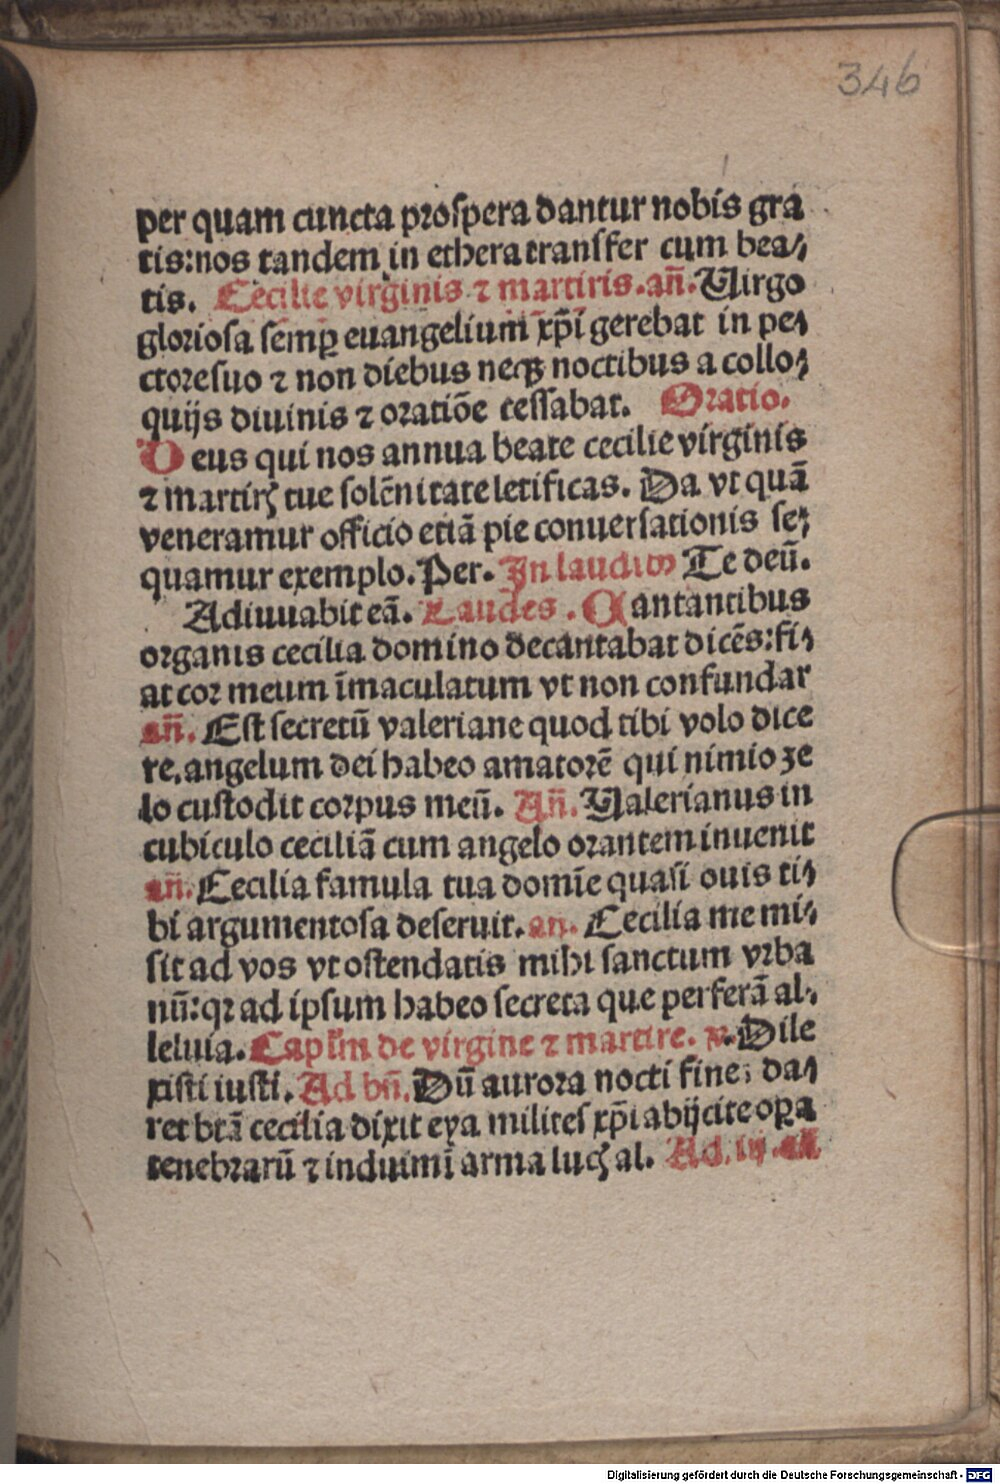 346
per quam cuncta prospera dantur nobis gra
tis: nos tandem in ethera transfer cum bea⸗
tis. Cecilie virginis ⁊ martiris. an̄. Uirgo
gloriosa semꝑ euangelium xp̄i gerebat in pe⸗
ctore suo ⁊ non diebus neqꝫ noctibus a collo⸗
quijs diuinis ⁊ oratiōe cessabat. Oratio.
Deus qui nos annua beate cecilie virginis
⁊ martirꝭ tue solēnitate letificas. Da vt quā
veneramur officio etiā pie conuersationis se⸗
quamur exemplo. Per. In laudibꝰ Te deū.
Adiuuabit eā. Laudes. Cantantibus
organis cecilia domino decantabat dicēs: fi⸗
at cor meum īmaculatum vt non confundar
an̄. Est secretū valeriane quod tibi volo dice
re. angelum dei habeo amatorē qui nimio ze
lo custodit corpus meū. An̄. Ualerianus in
cubiculo ceciliā cum angelo orantem inuenit
an̄. Cecilia famula tua domīe quasi ouis ti⸗
bi argumentosa deseruit. an. Cecilia me mi⸗
sit ad vos vt ostendatis mihi sanctum vrba
nū: qꝛ ad ipsum habeo secreta que perferā al⸗
leluia. Capl'm de virgine ⁊ martire. ℟. Dile
xisti iusti. Ad bn̄. Dū aurora nocti finē da⸗
ret btā cecilia dixit eya milites xp̄i abijcite oꝑa
tenebrarū ⁊ induimī arma lucꝭ al. Ad. iij.
Digitalisierung gefördert durch die Deutsche Forschungsgemeinschaft - DFG